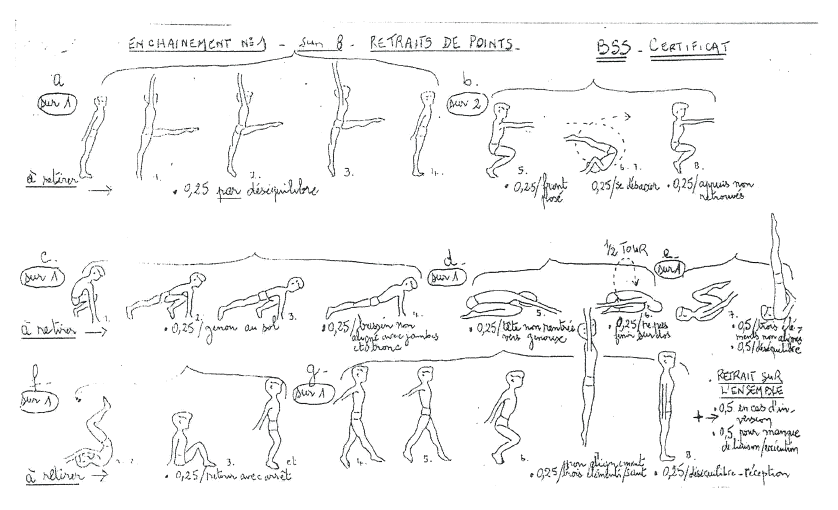 ENCHAINEMENT N°1 - sur 8 - RETRAITS DE POINTS -
BSS - CERTIFICAT
a
sur 1
b.
sur 2
1.
2.
3.
4.
5.
6. 7.
8.
à retirer
• 0,25 par déséquilibre
• 0,25/front
posé
0,25/se désaxer
• 0,25/appuis non
retrouvés
c.
sur 1
d
sur 1
1/2 TOUR
e
sur 1
1.
2.
3.
4.
5.
6.
7.
à retirer
• 0,25/genou au sol
• 0,25/bassin non
aligné avec jambes
et tronc
• 0,25/tête non rentrée
vers genoux
• 0,25/
fini sur dos
• 0,5/trois élé-
ments non alignés
• 0,5/déséquilibre
f
sur 1
g.
sur 1
3.
et
4.
5.
6.
8.
à retirer
• 0,25/retour avec arrêt
non alignement
• 0,25/trois éléments/saut
• 0,25/déséquilibre-réception
• RETRAIT SUR
L'ENSEMBLE
+ → • 0,5 en cas d'in-
version
• 0,5 pour manque
de liaison/exécution